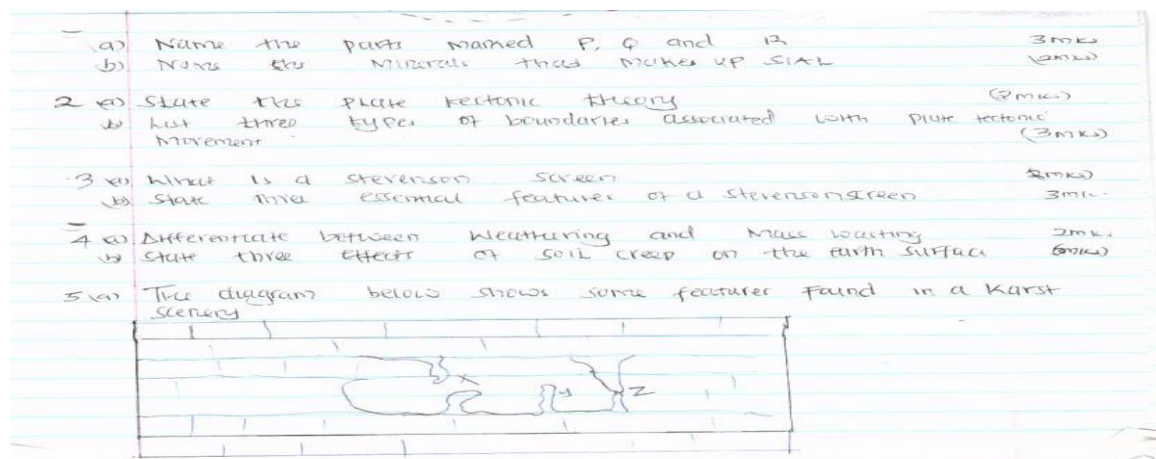 (a) Name the parts marked P, Q and R 3mks
b) Name the Minerals that makes up SIAL (2mks)
2 (a) State the plate tectonic theory (2mks)
b) List three types of boundaries associated with plate tectonic
movement (3mks)
3 (a) What is a stevenson screen (2mks)
b) State three essential features of a stevenson screen 3mk.
4 (a) Differentiate between Weathering and Mass wasting 2mk.
b) State three effects of soil creep on the earth surface
5 (a) The diagram below shows some features found in a Karst
scenery
X
Y
Z